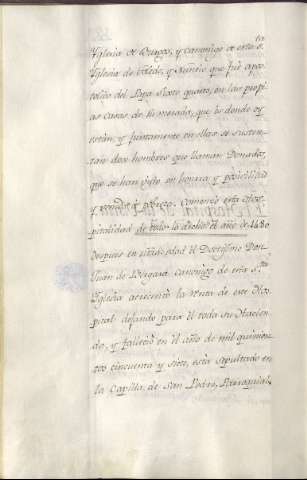 Yglesia de Burgos, y Canonigo de esta S.
Yglesia de toledo, y Nuncio que fue apos-
tolico del Papa Sixto quarto, en las propi-
as casas de su morada, que es donde oy
están, y juntamente en ellas se susten-
tan doce hombres que llaman Donados,
que se han visto en honrra y
y venido à pobreza. Comenzó esta ospi-
talidad de todo lo dicho el año de 1480
Despues en ntra. edad el Doctissimo Don
Juan de Vergara canonigo de esta S.ta
Yglesia acrecentó la renta de este Hos-
pital dejando para él toda su Hacien-
da, y falleció en el año de mil quinien-
tos cincuenta y siete, està sepultado en
la Capilla de San Pedro, Parroquial